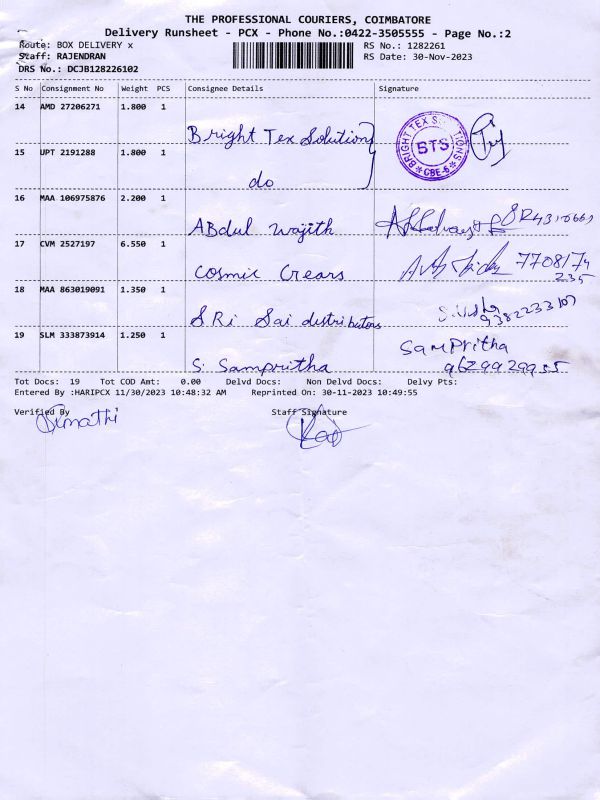 THE PROFESSIONAL COURIERS, COIMBATORE
Delivery Runsheet - PCX - Phone No.:0422-3505555 - Page No.:2
Route: BOX DELIVERY x RS No.: 1282261
Staff: RAJENDRAN RS Date: 30-Nov-2023
DRS No.: DCJB128226102
S No Consignment No Weight PCS Consignee Details Signature
14 AMD 27206271 1.800 1 Bright Tex Solution
BRIGHT TEX SOLUTIONS BTS CBE-6
15 UPT 2191288 1.800 1 do
16 MAA 106975876 2.200 1 ABdul wajith
17 CVM 2527197 6.550 1 Cosmic Crears 7708174
235
18 MAA 863019091 1.350 1 SRi Sai distributors
9382233107
19 SLM 333873914 1.250 1 S. Sampritha Sampritha
9629929955
Tot Docs: 19 Tot COD Amt: 0.00 Delvd Docs: Non Delvd Docs: Delvy Pts:
Entered By :HARIPCX 11/30/2023 10:48:32 AM Reprinted On: 30-11-2023 10:49:55
Verified By Staff Signature